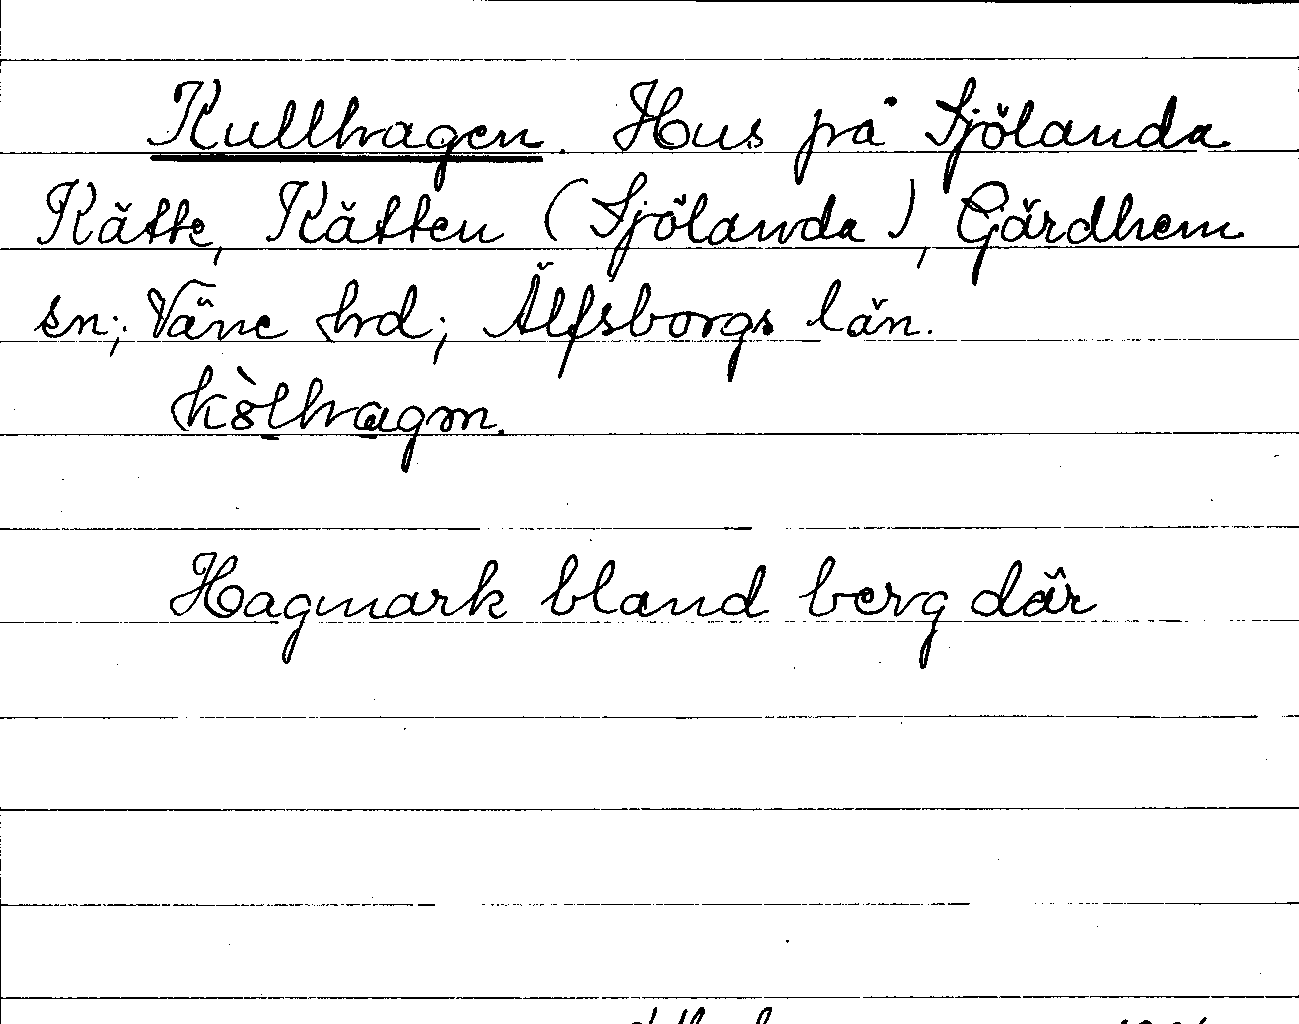 Kullhagen. Hus på Sjölanda
Kätte, Kätten (Sjölanda), Gärdhem
sn; Väne hd; Älfsborgs län.
kòlhagm.
Hagmark bland berg där